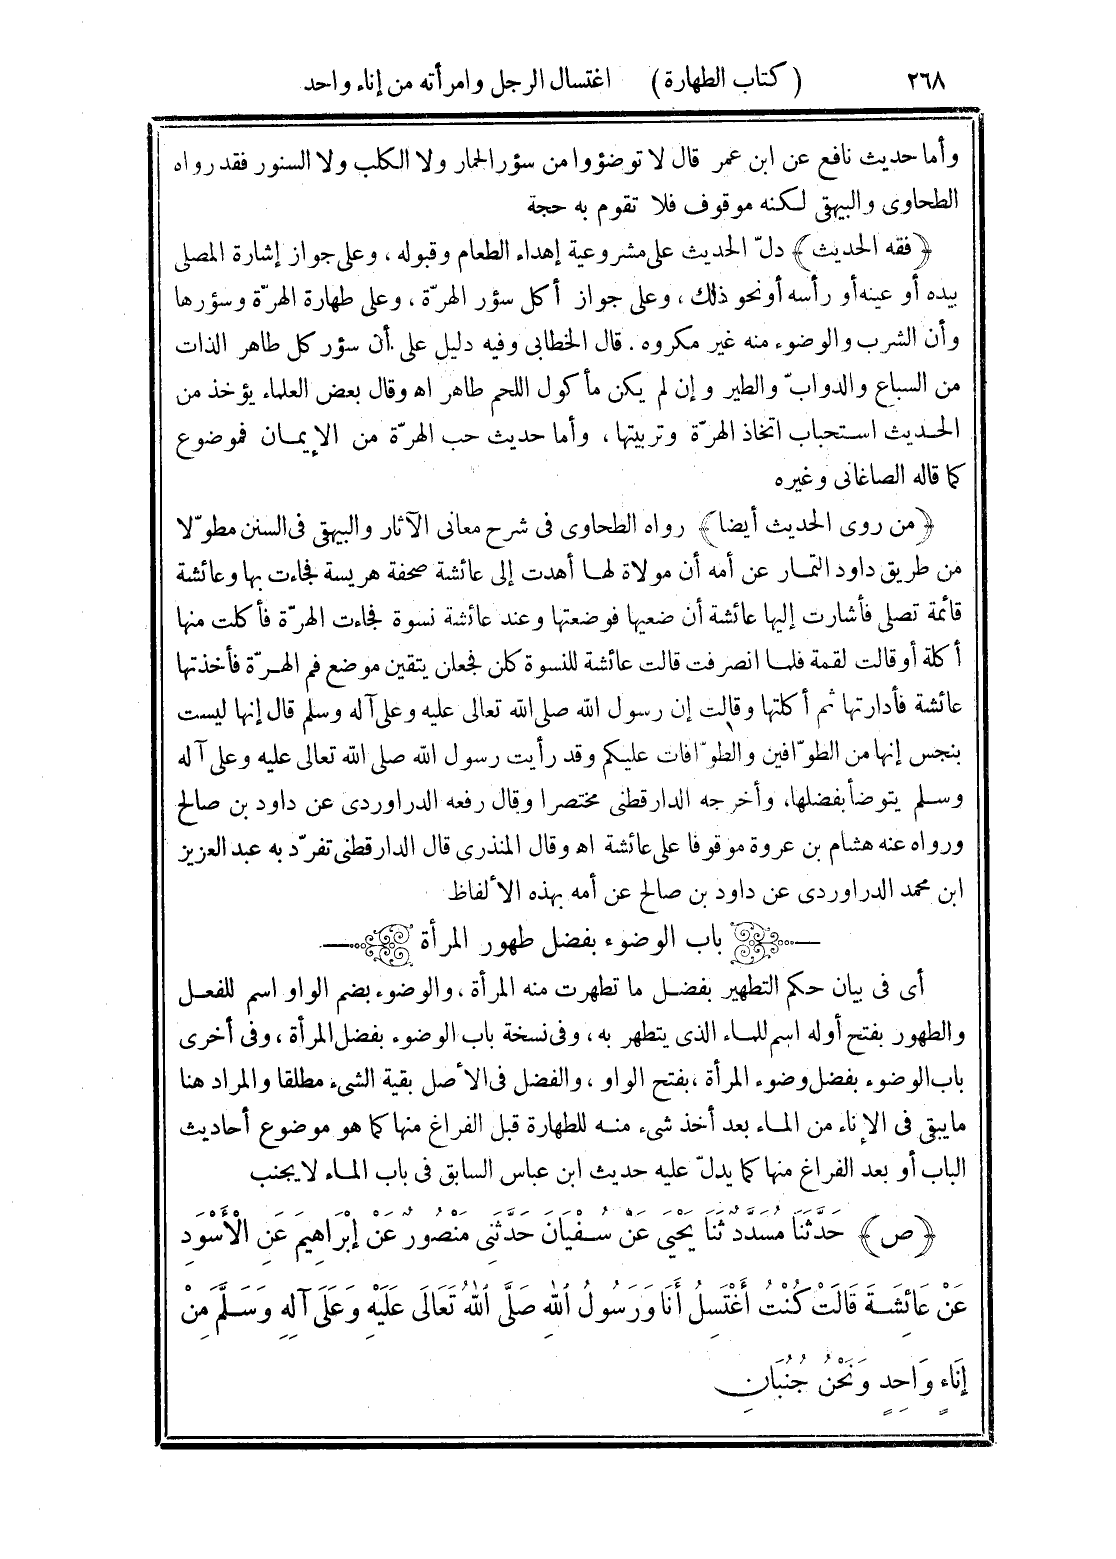 ٢٦٨ (كتاب الطهارة) اغتسال الرجل وامرأته من إناء واحد
وأما حديث نافع عن ابن عمر قال لا توضؤوا من سؤر الحمار ولا الكلب ولا السنور فقد رواه
الطحاوى والبيهقى لكنه موقوف فلا تقوم به حجة
﴿فقه الحديث﴾ دلّ الحديث على مشروعية إهداء الطعام وقبوله ، وعلى جواز إشارة المصلى
بيده أو عينه أو رأسه أونحو ذلك ، وعلى جواز أكل سؤر الهرّة ، وعلى طهارة الهرّة وسؤرها
وأن الشرب والوضوء منه غير مكروه . قال الخطابى وفيه دليل على أن سؤر كل طاهر الذات
من السباع والدوابّ والطير وإن لم يكن مأكول اللحم طاهر اه وقال بعض العلماء يؤخذ من
الحديث استحباب اتخاذ الهرّة وتربيتها ، وأما حديث حب الهرّة من الإيمان فموضوع
كما قاله الصاغانى وغيره
﴿من روى الحديث أيضا﴾ رواه الطحاوى فى شرح معانى الآثار والبيهقى فى السنن مطوّلا
من طريق داود التمار عن أمه أن مولاة لها أهدت إلى عائشة صحفة هريسة فجاءت بها وعائشة
قائمة تصلى فأشارت إليها عائشة أن ضعيها فوضعتها وعند عائشة نسوة فجاءت الهرّة فأكلت منها
أكلة أوقالت لقمة فلما انصرفت قالت عائشة للنسوة كلن فجعلن يتقين موضع فم الهرّة فأخذتها
عائشة فأدارتها ثم أكلتها وقالت إن رسول الله صلى الله تعالى عليه وعلى آله وسلم قال إنها ليست
بنجس إنها من الطوّافين والطوّافات عليكم وقد رأيت رسول الله صلى الله تعالى عليه وعلى آله
وسلم يتوضأ بفضلها، وأخرجه الدارقطنى مختصرا وقال رفعه الدراوردى عن داود بن صالح
ورواه عنه هشام بن عروة موقوفا على عائشة اه وقال المنذرى قال الدارقطنى تفرّد به عبد العزيز
ابن محمد الدراوردى عن داود بن صالح عن أمه بهذه الألفاظ
باب الوضوء بفضل طهور المرأة
أى فى بيان حكم التطهير بفضل ما تطهرت منه المرأة ، والوضوء بضم الواو اسم للفعل
والطهور بفتح أوله اسم للماء الذى يتطهر به ، وفى نسخة باب الوضوء بفضل المرأة ، وفى أخرى
باب الوضوء بفضل وضوء المرأة ، بفتح الواو ، والفضل فى الأصل بقية الشىء مطلقا والمراد هنا
مايبقى فى الإناء من الماء بعد أخذ شىء منه للطهارة قبل الفراغ منها كما هو موضوع أحاديث
الباب أو بعد الفراغ منها كما يدلّ عليه حديث ابن عباس السابق فى باب الماء لا يجنب
﴿ص﴾ حَدَّثَنَا مُسَدَّدٌ ثَنَا يَحْيَى عَنْ سُفْيَانَ حَدَّثَنِى مَنْصُورٌ عَنْ إِبْرَاهِيمَ عَنِ الْأَسْوَدِ
عَنْ عَائِشَةَ قَالَتْ كُنْتُ أَغْتَسِلُ أَنَا وَرَسُولُ اللهِ صَلَّى اللهُ تَعَالَى عَلَيْهِ وَعَلَى آلِهِ وَسَلَّمَ مِنْ
إِنَاءٍ وَاحِدٍ وَنَحْنُ جُنُبَانِ